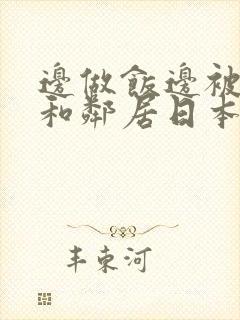 邊做飯邊被
和鄰居日本
丰東河